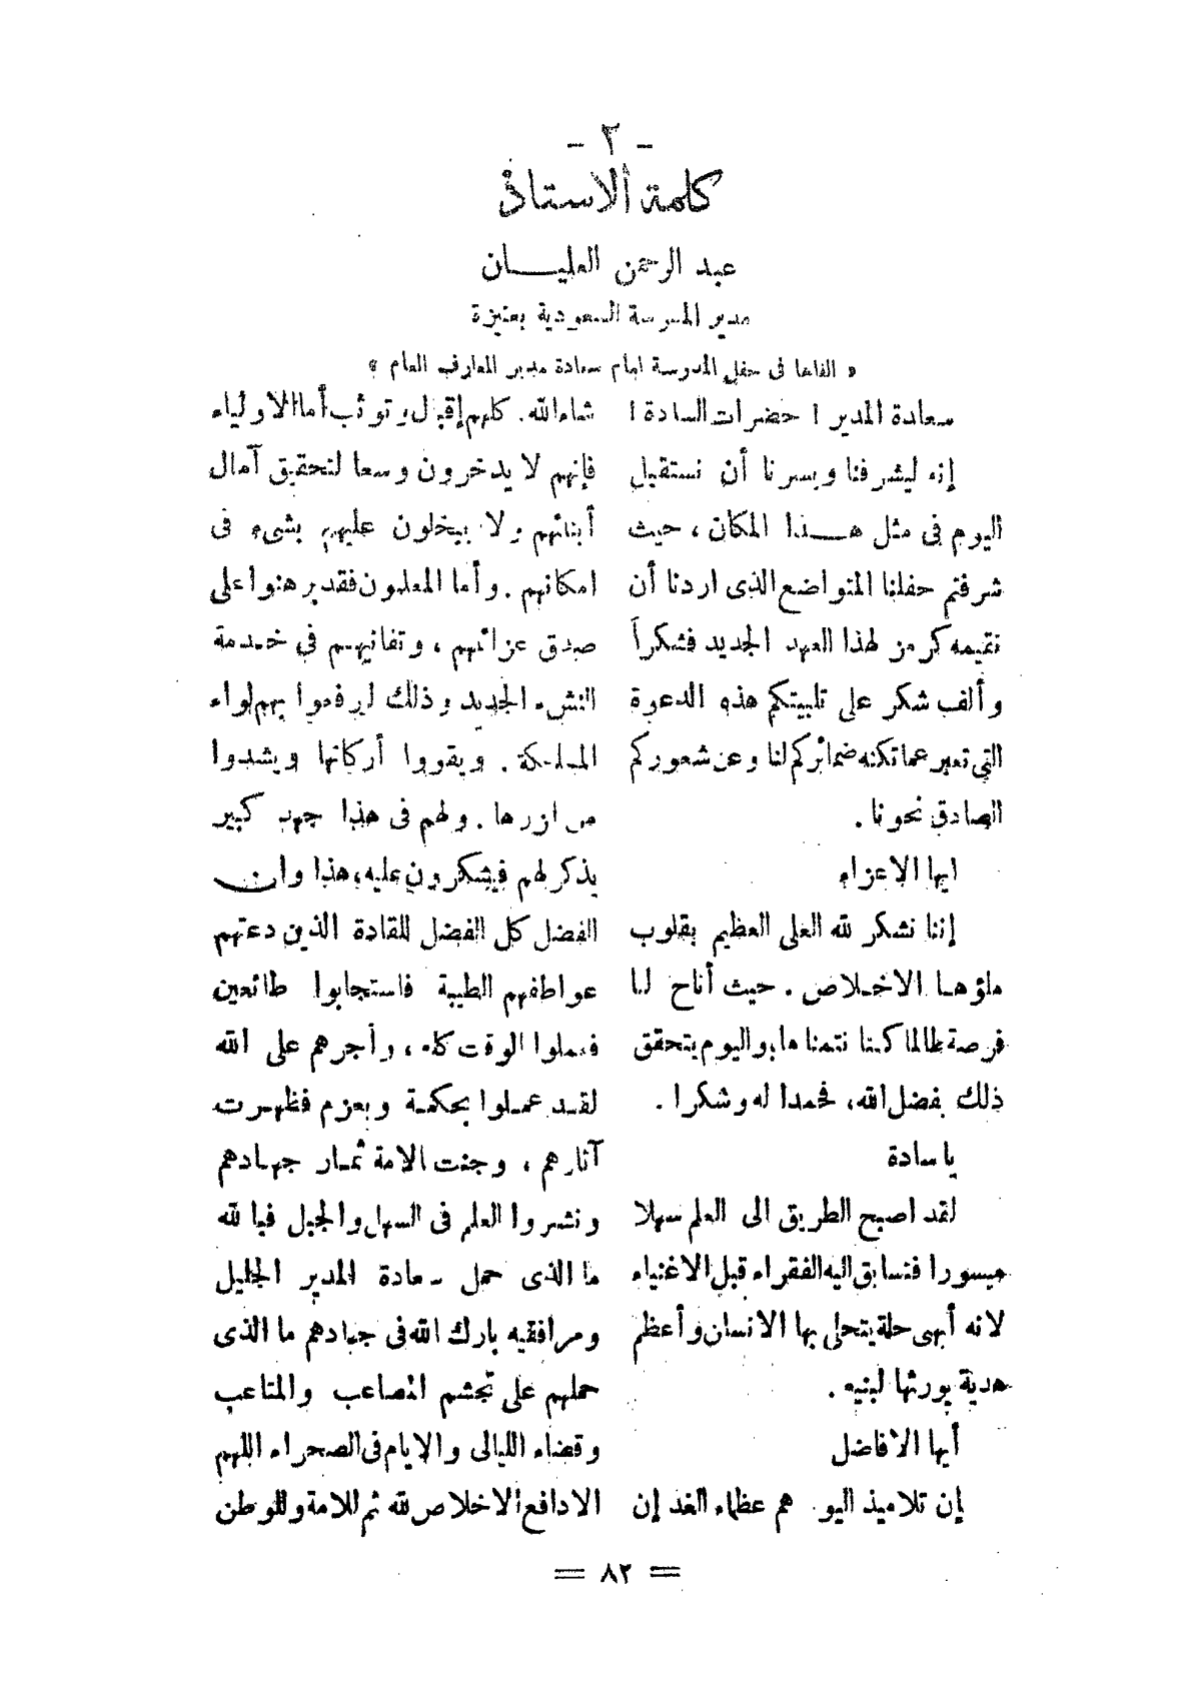 - ٢ -
كلمة الاستاذ
عبد الرحمن العليـــان
مدير المدرسة السعودية بعنيزة
« القاها في حفل المدرسة امام سعادة مدير المعارف العام »
سعادة المدير ! حضرات السادة !
إنه ليشرفنا ويسرنا أن نستقبل
اليوم في مثل هـــذا المكان ، حيث
شرفتم حفلنا المتواضع الذى اردنا أن
نقيمه كرمز لهذا العهد الجديد فشكراً
وألف شكر على تلبيتكم هذه الدعوة
التي تعبر عما تكنه ضمائركم لنا وعن شعوركم
الصادق نحونا .
ايها الاعزاء
إننا نشكر لله العلى العظيم بقلوب
ملؤهـا الاخـلاص . حيث أتاح لنا
فرصة طالما كـنا نتمناها ، واليوم يتحقق
ذلك بفضل الله ، فحمدا له وشكرا .
ياسادة
لقد اصبح الطريق الى العلم سهلا
ميسورا فتسابق اليه الفقراء قبل الاغنياء
لانه أبهى حلة يتحلى بها الانسان وأعظم
هدية يورثها لبنيه .
أيها الافاضل
إن تلاميذ اليوم هم عظماء الغد إن
شاء الله . كلهم إقبال وتوثب أما الاولياء
فإنهم لا يدخرون وسعا لتحقيق آمال
أبنائهم ولا يبخلون عليهم بشيء فى
امكانهم . وأما المعلمون فقد برهنوا على
صدق عزائمهم ، وتفانيهـم في خـدمة
النشء الجديد وذلك ليرفعوا بهم لواء
المملـكة . ويقووا أركانها ويشدوا
من ازرها . ولهم فى هذا جهد كبير
يذكر لهم فيشكرون عليه ، هذا وان
الفضل كل الفضل للقادة الذين دعتهم
عواطفهم الطيبة فاستجابوا طائعين
فعملوا الوقت كله ، وأجرهم على الله
لقـد عمـلوا بحكمـة وبعزم فظهـرت
آثارهم ، وجنت الامة ثمـار جهـادهم
ونشروا العلم فى السهل والجبل فيا لله
ما الذى حمل سعادة المدير الجليل
ومرافقيه بارك الله فى جهادهم ما الذى
حملهم على تجشم المصاعب والمتاعب
وقضاء الليالى والايام فى الصحراء اللهم
الا دافع الاخلاص لله ثم للامة وللوطن
= ٨٢ =